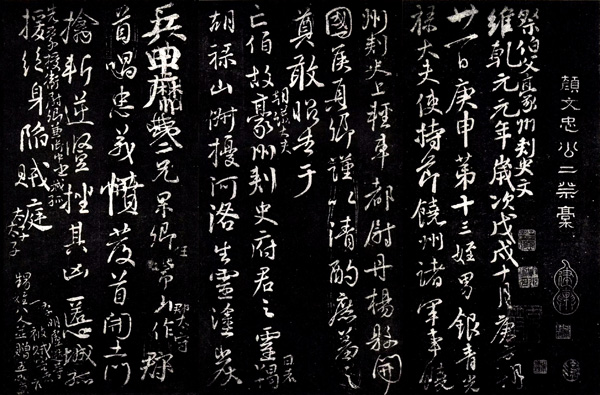 顏文忠公二祭稾
祭伯父豪州刺史文
維乾元元年歲次戊戌十月庚午朔
廿一日庚申第十三姪男銀青光
祿大夫使持節饒州諸軍事饒
州刺史上輕車都尉丹楊縣開
國侯真卿謹以清酌庶羞之
奠敢昭告于
亡伯故豪州刺史府君之靈曰者羯
朝議大夫
胡祿山俶擾河洛生靈塗炭
二兄杲卿任常山作郡
郡太守
首唱忠義憤發首開土門
擒斬逆豎挫其凶慝城孤
援絕身陷賊庭